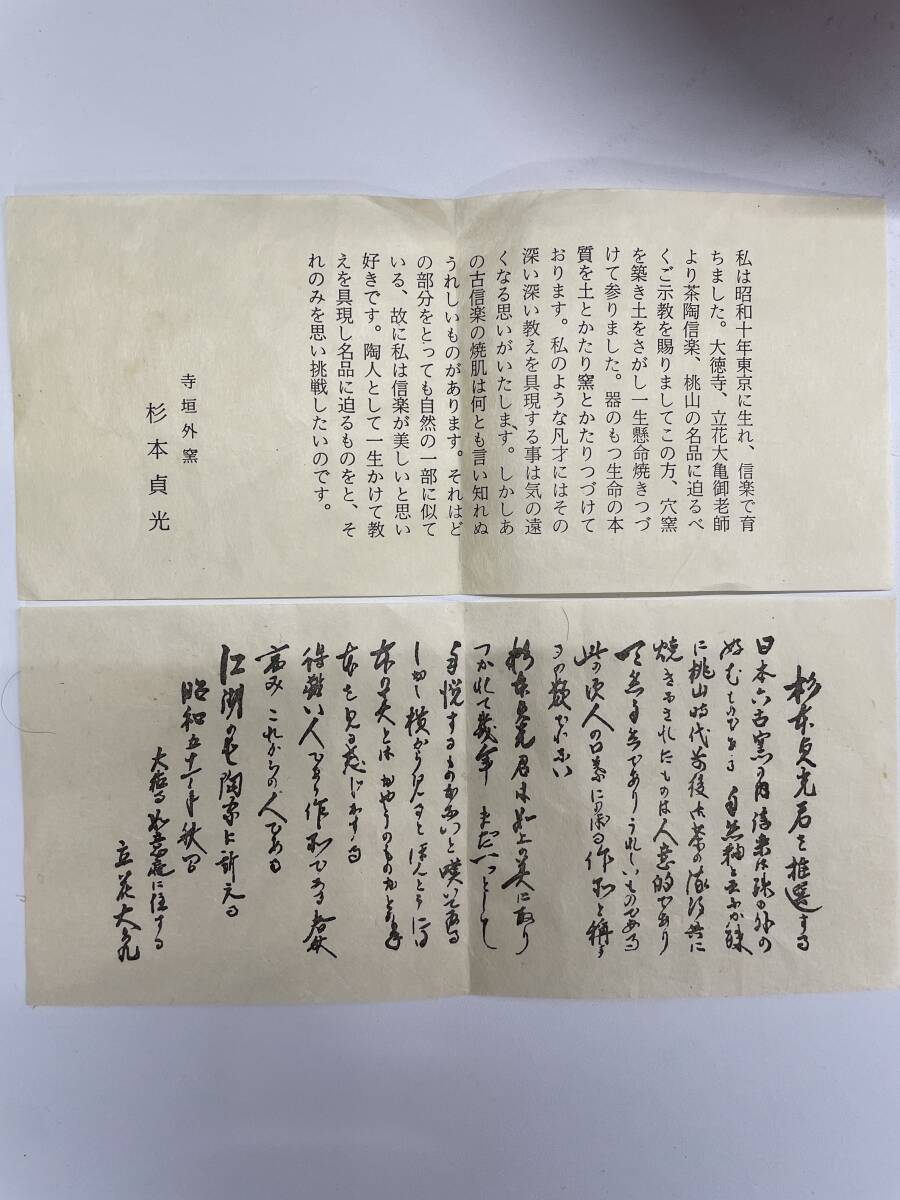 私は昭和十年東京に生れ、信楽で育
ちました。大徳寺、立花大亀御老師
より茶陶信楽、桃山の名品に迫るべ
くご示教を賜りましてこの方、穴窯
を築き土をさがし一生懸命焼きつづ
けて参りました。器のもつ生命の本
質を土とかたり窯とかたりつづけて
おります。私のような凡才にはその
深い深い教えを具現する事は気の遠
くなる思いがいたします。しかしあ
の古信楽の焼肌は何とも言い知れぬ
うれしいものがあります。それはど
の部分をとっても自然の一部に似て
いる、故に私は信楽が美しいと思い
好きです。陶人として一生かけて教
えを具現し名品に迫るものをと、そ
れのみを思い挑戦したいのです。
寺垣外窯
杉本貞光
杉本貞光君を推選する
日本六古窯の内信楽は殊の外の
に桃山時代前後
焼き出されたものは人意的であり
でありうれしいものである
此の頃人の口葉に作品と称す
杉本貞光君は
つかれて幾年 まだ一つとして
自悦するものがないと嘆いて居る
しかし横から見るとほんとうに
得難い人であり作品である
高み これからの人である
江湖の
昭和五十一年秋日
大徳寺 如意庵に住する
立花大亀